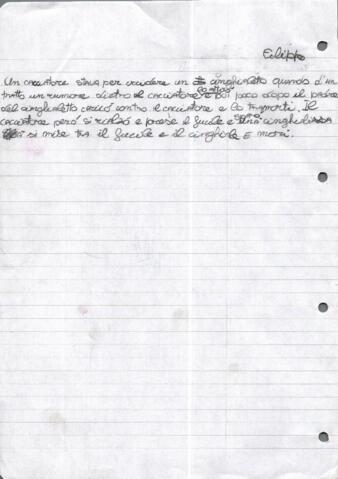 Filippo
Un cacciatore stava per uccidere un cinghialetto quando d'un
tratto un rumore dietro il cacciatore e poi poco dopo il padre
del cinghialetto caricò contro il cacciatore e lo tramortì. Il
cacciatore però si rialzò e prese il fucile e cinghialessa
si mise tra il fucile e il cinghiale E morì.